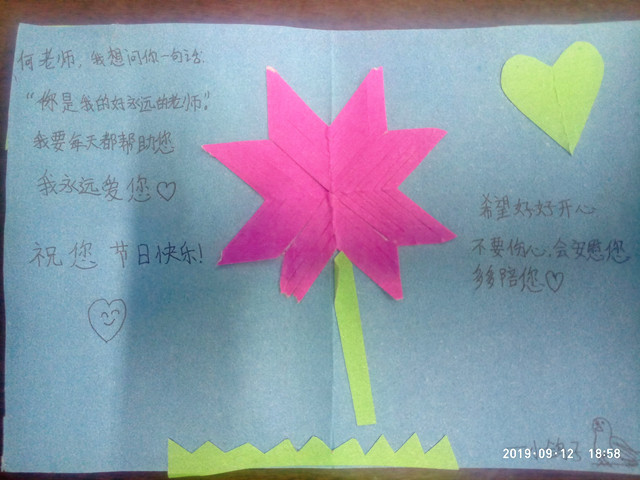 何老师，我想问你一句话
“你是我的好永远的老师”
我要每天都帮助您
我永远爱您♡
祝您 节日快乐!
希望好好开心
不要伤心,会安慰您
多多陪您♡
2019·09·12 18:58